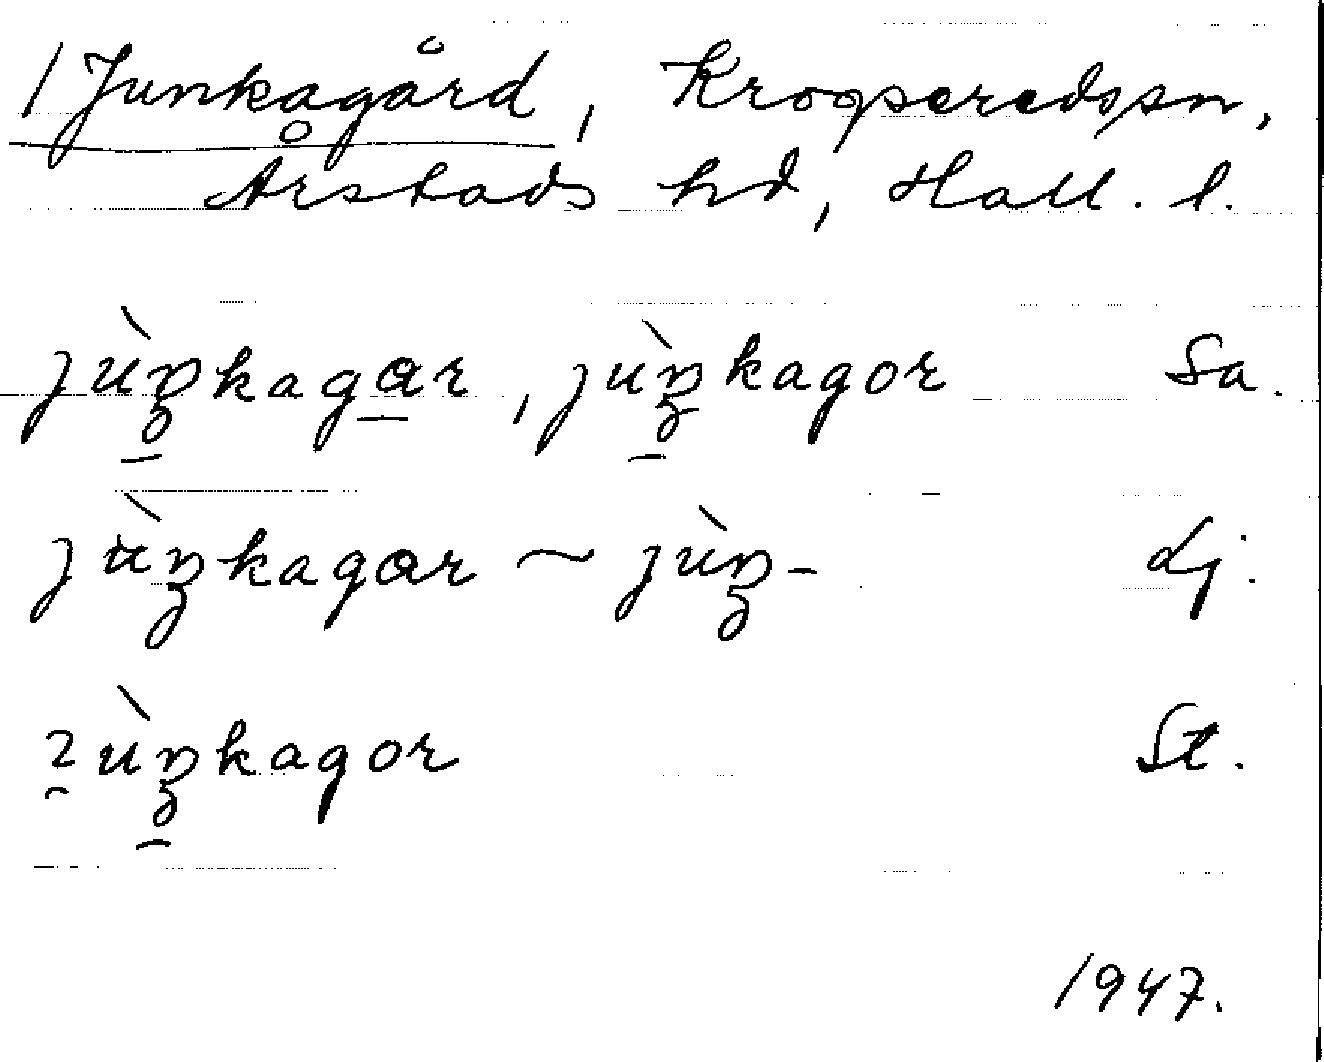 1 Junkagård, Krogseredssn,
Årstads hd, Hall. l.
jùŋkagar, jùŋkagor Sa.
jùŋkagar ~ jùŋ- Lj.
ɂùŋkagor St.
1947.